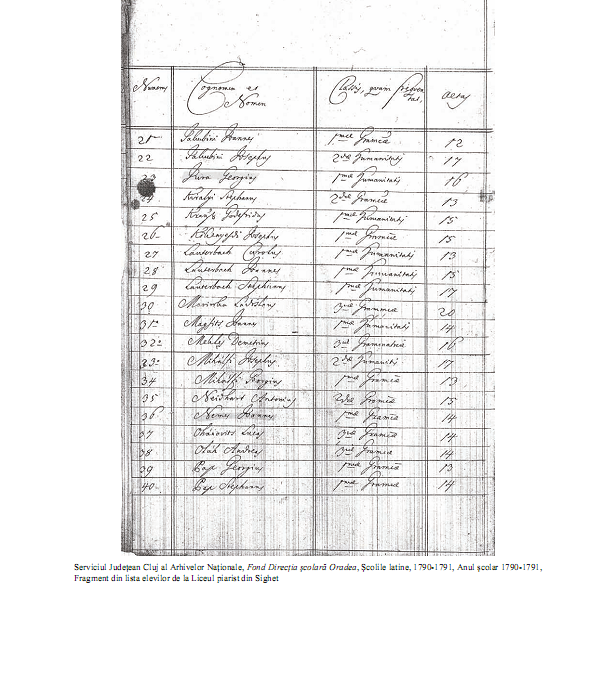 Numerus Cognomen et Nomen Classis, quam frequentat, aetas
21 Joannes 1mae Gramcae 12
22 Josephus 2dae Humanitatis 17
23 Georgius 1mae Humanitatis 16
24 Kiralyi Stephanus 2dae Gramcae 13
25 Godefridus 1mae Humanitatis 15
26 Kökenyesdi Josephus 1mae Gramcae 15
27 Lauterbach Carolus 1mae Humanitatis 13
28 Lauterbach Joannes 1mae Humanitatis 15
29 Lauterbach Stephanus 1mae Humanitatis 17
30 Ladislaus 3tiae 20
31 Joannes 1mae Humanitatis 14
32 Demetrius 3tiae Grammaticae 16
33 Mihalyi Josephus 2dae 17
34 Mihalyi Georgius 1mae Gramcae 13
35 Neidhart Antonius 2dae Gramcae 15
36 Nemes Joannes 1mae Gramcae 14
37 Lucas 3tiae Gramcae 14
38 Olah Andreas 3tiae Gramcae 14
39 Pap Georgius 1mae Gramcae 13
40 Pap Stephanus 1mae Gramcae 14
Serviciul Județean Cluj al Arhivelor Naționale, Fond Direcția școlară Oradea, Școlile latine, 1790-1791, Anul școlar 1790-1791,
Fragment din lista elevilor de la Liceul piarist din Sighet